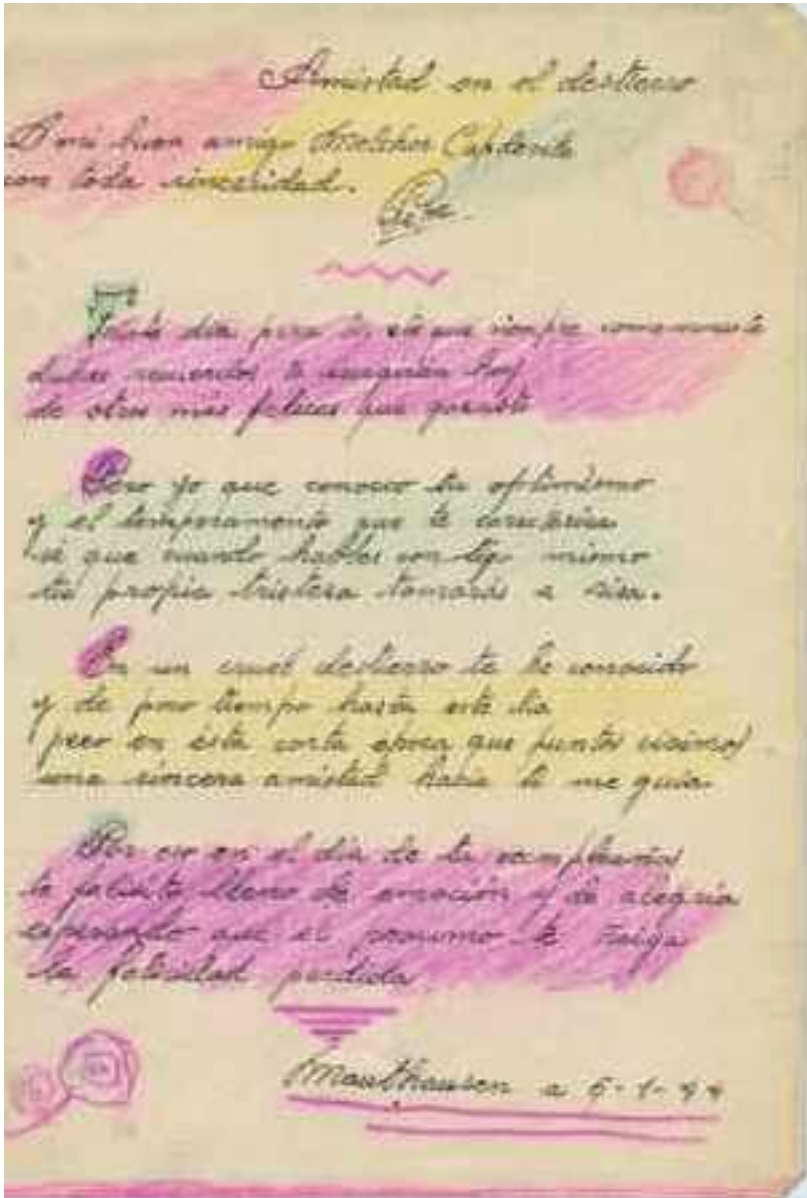 Amistad en el destierro
A mi buen amigo Melchor Capdevila
con toda sinceridad.
Pepe
Triste día para ti, el que siempre conmemoraste
dulces recuerdos te surgirán hoy
de otros más felices que gozaste
Pero yo que conozco tu optimismo
y el temperamento que te caracteriza
sé que cuando hables con tigo mismo
tu propia tristeza tomarás a risa.
En un cruel destierro te he conocido
y de poco tiempo hasta este día
pero en ésta corta época que juntos vivimos
una sincera amistad hacia ti me guía
Por eso en el día de tu cumpleaños
te felicito lleno de emoción y de alegría
esperando que el proximo te traiga
la felicidad perdida
Mauthausen a 6-1-44